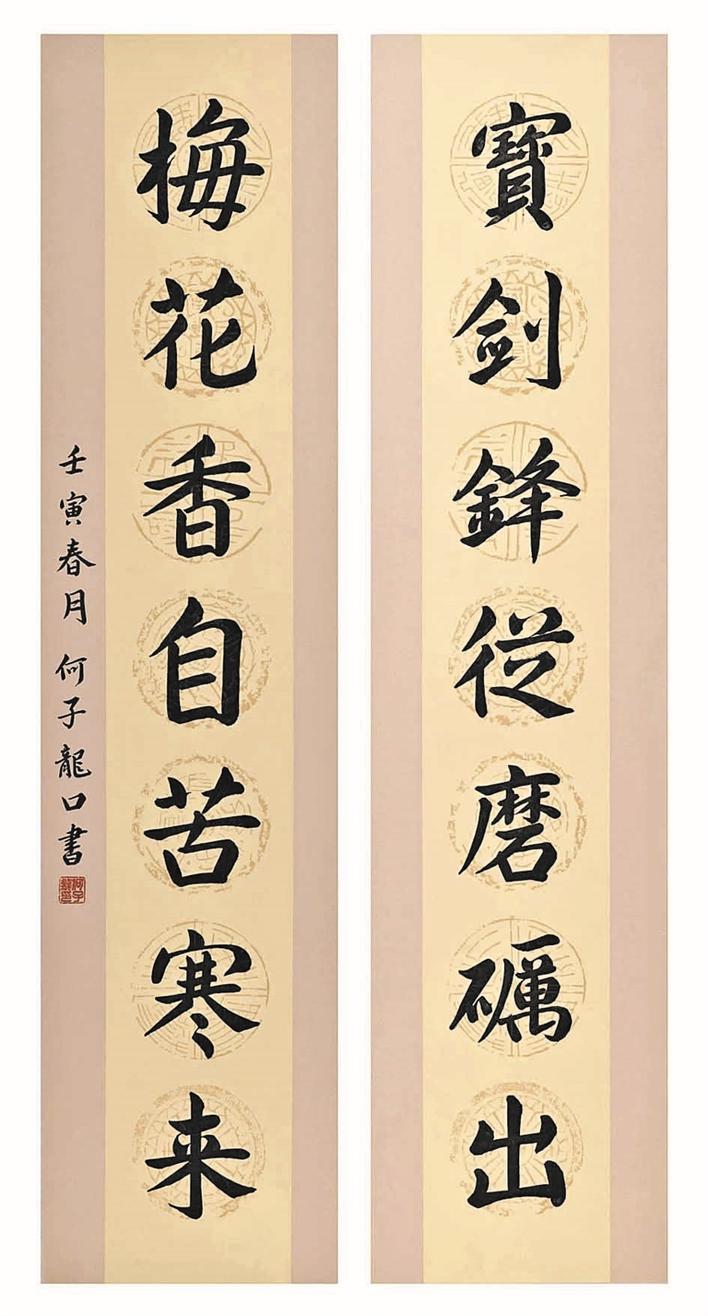 寶剑鋒従磨礪出
梅花香自苦寒来
壬寅春月 何子龍口書